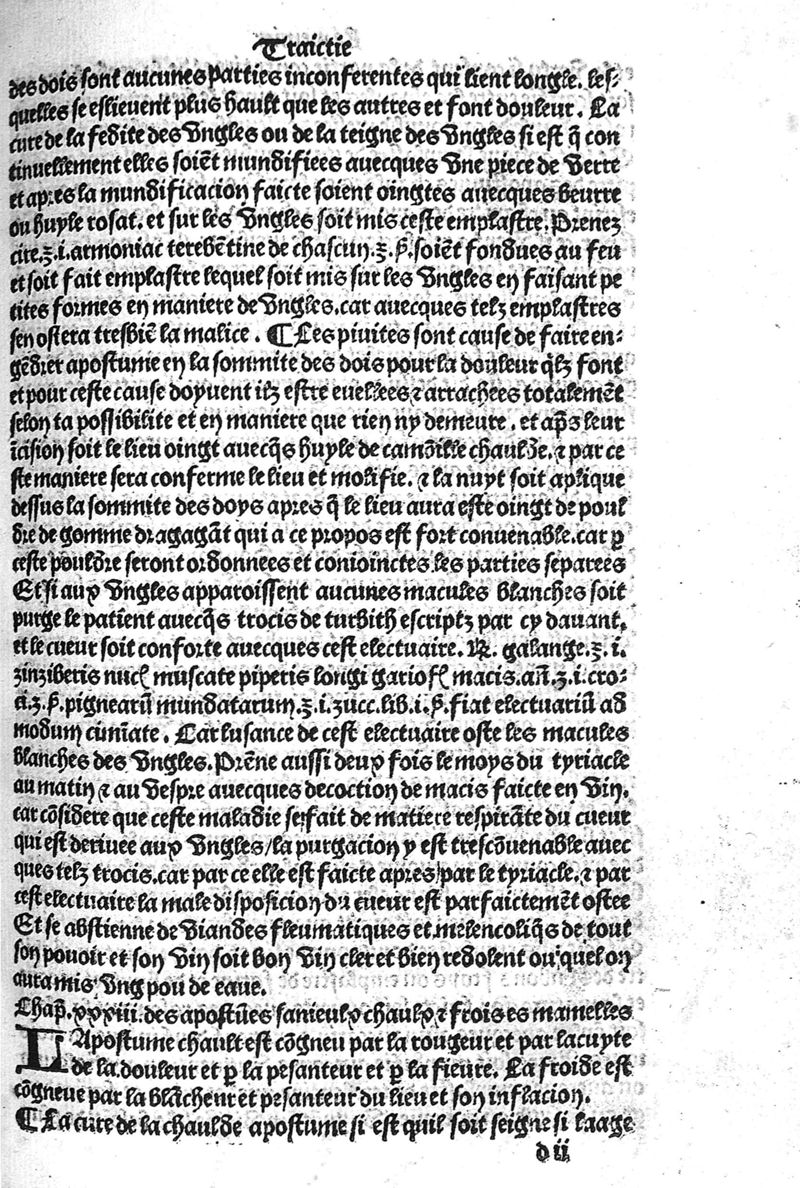 Traictie
des dois sont aucunes parties inconferentes qui lient longle. les-
quelles se eslieuent plus hault que les autres et font douleur. La
cure de la fedite des Vngles ou de la teigne des Vngles si est q̃ con
tinuellement elles soiẽt mundifiees auecques Vne piece de Verre
et apres la mundificacion faicte soient oingtes auecques beurre
ou huyle rosat. et sur les Vngles soit mis ceste emplastre. Prenez
cire.ʒ.i.armoniac terebẽtine de chascun.ʒ.ß.soiẽt fondues au feu
et soit fait emplastre lequel soit mis sur les Vngles en faisant pe
tites formes en maniere de Vngles.car auecques telz emplastres
sen ostera tresbiẽ la malice. ¶ Les piuites sont cause de faire en-
gẽdrer apostume en la sommite des dois pour la douleur q̃lz font
et pour ceste cause doyuent ilz estre euellees ⁊ arrachees totalemẽt
selon ta possibilite et en maniere que rien ny demeure. et ap̃s leur
ĩcision soit le lieu oingt auecq̃s huyle de camõille chaulde. ⁊ par ce
ste maniere sera conferme le lieu et molifie. ⁊ la nuyt soit aplique
dessus la sommite des doys apres q̃ le lieu aura este oingt de poul
dre de gomme dragagãt qui a ce propos est fort conuenable.car ꝑ
ceste pouldre seront ordonnees et conioinctes les parties separees
Et si aux Vngles apparoissent aucunes macules blanches soit
purge le patient auecq̃s trocis de turbith escriptz par cy dauant.
et le cueur soit conforte auecques cest electuaire. ℞. galange.ʒ.i.
zinziberis nucꝭ muscate piperis longi gariofꝭ macis.añ.ʒ.i.cro-
ci.ʒ.ß.pignearũ mundatarum.ʒ.i.zucc.lib.i.ß.fiat electuariũ ad
modum cimĩate. Car lusance de cest electuaire oste les macules
blanches des Vngles.Prẽne aussi deux fois le moys du tyriacle
au matin ⁊ au Vespre auecques decoction de macis faicte en Vin.
car cõsidere que ceste maladie se fait de matiere respirãte du cueur
qui est deriuee aux Vngles/la purgacion y est trescõuenable auec
ques telz trocis.car par ce elle est faicte apres/par le tyriacle. ⁊ par
cest electuaire la male disposicion du cueur est parfaictemẽt ostee
Et se abstienne de Viandes fleumatiques et melencoliq̃s de tout
son pouoir et son Vin soit bon Vin cler et bien redolent ouquel on
aura mis Vng pou de eaue.
Chap̃.xxxiii.des apostũes sanieulx chaulx ⁊ frois es mamelles
LApostume chault est cõgneu par la rougeur et par lacuyte
de la douleur et ꝑ la pesanteur et ꝑ la fieure. La froide est
cõgneue par la blãcheur et pesanteur du lieu et son inflacion.
¶ La cure de la chaulde apostume si est quil soit seigne si laage
d ii